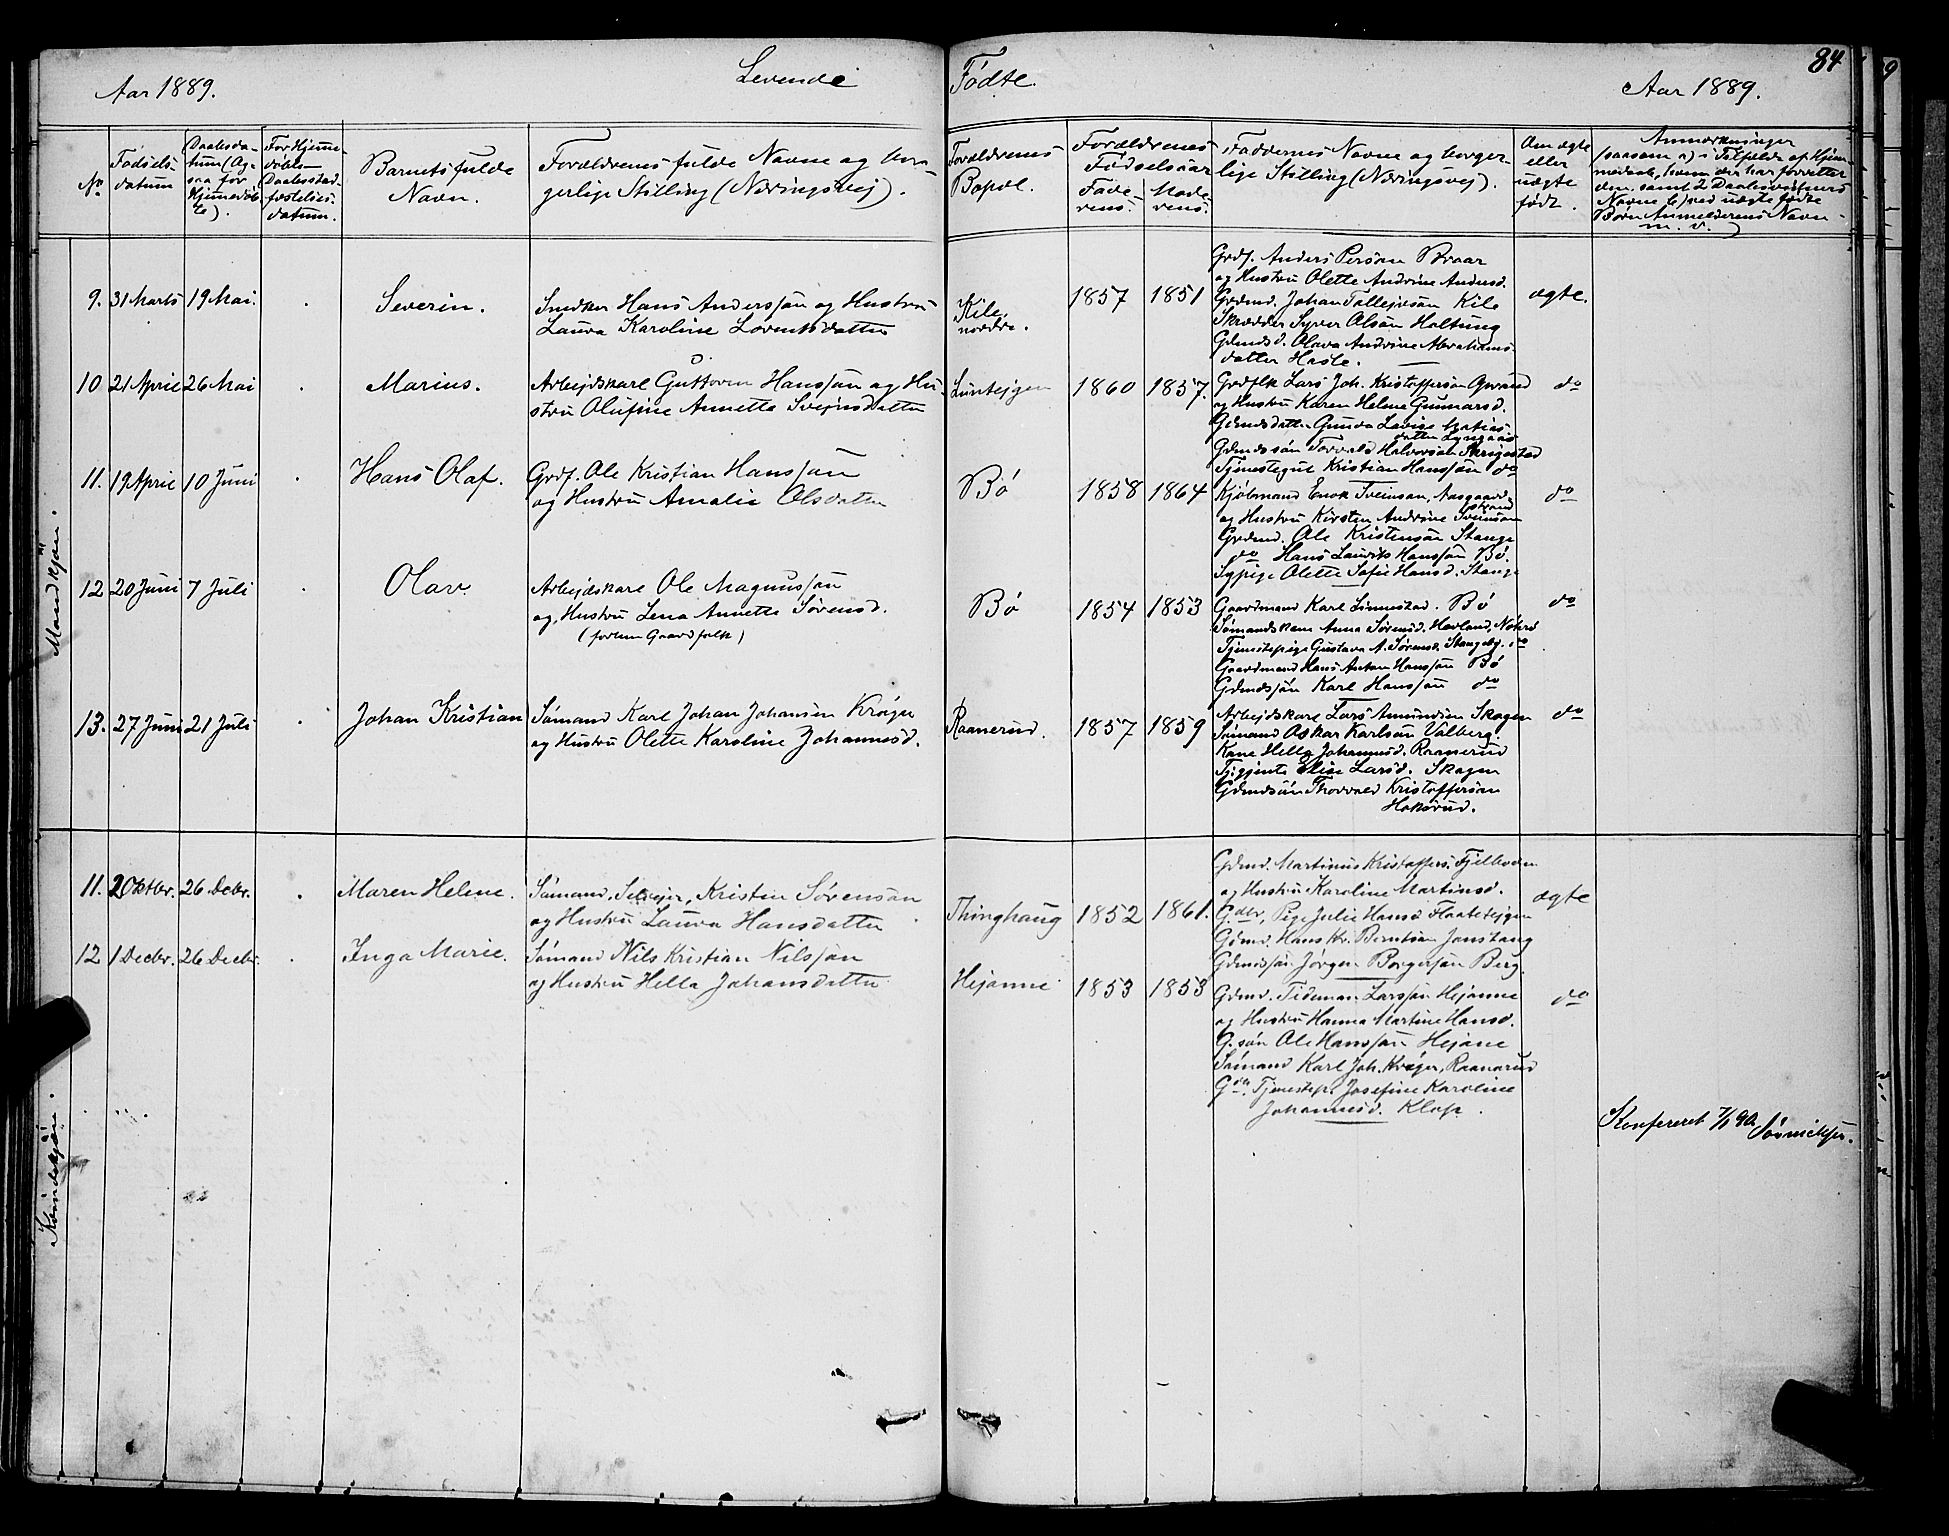 Aar 1889.
Levende
Fødte.
Aar 1889.
84
No
Fødsels-
datum
Daabsda-
tum (Og-
saa for
Hjemmedøb-
te).
For Hjemme-
døbte
Daabsstad-
fæstelses-
datum.
Barnets fulde
Navn.
Forældrenes fulde Navne og bor-
gerlige Stilling (Næringsvej).
Forældrenes
Bopæl.
Forældrenes
Fødselsaar
Fade-
rens.
Mode-
rens.
Faddernes Navne og borger-
lige Stilling (Næringsvej).
Om ægte
eller
uægte
født.
Anmærkninger
(saasom a) i Tilfælde af Hjem-
medaab, hvem der har forrettet
den, samt 2 Daabsvidners
Navne b) ved uægte fødte
Børn Anmelderens Navn
m. v. )
Mandkjøn.
9. 31 Marts 19 Mai.
Severin.
Snedker Hans Anderssøn og Hustru
Laura Karoline Lorentsdatter
Kile,
nordre.
1857 1851
Grdf. Anders Persøn Braar
og Hustru Olette Andrine Andersd.
Grdmd. Johan Tallejvsøn Kile
Skrædder Syver Olsøn Holtung
Gdmdsd. Olava Andrine Abrahams-
datter Hasle.
ægte.
10 21 April 26 Mai
Marius.
Arbejdskarl Guttorm Hanssøn og Hu-
stru Olufine Annette Svejnsdatter
Luntejgen
1860 1857.
Grdflk Lars Joh. Kristoffersøn
og Hustru Karen Helene Gunnarsd.
Gdmdsdatter Gunda Lovise Matias-
datter Lyngaas
Gdmdssøn Torvald Halvorsøn
Tjenestegut Kristian Hanssøn do
do
11. 19 April 10 Juni
Hans Olaf.
Grdf. Ole Kristian Hanssøn
og Hustru Amalie Olsdatter
Bø
1858 1864
Kjøbmand Enok Sveinsøn, Aasgaard-
strand
og Hustru Kirsten Andrine Sveinsøn
Grdmd. Ole Kristensøn Stange
do Hans Laurits Hanssøn Bø.
Sypige Olette Sofie Hansd. Stange
do
12 20 Juni 7 Juli
Olav
Arbejdskarl Ole Magnussøn
og Hustru Lena Annette Sørensd.
(forhen Gaardfolk)
Bø
1854 1853
Gaardmand Karl Linnestad. Bø
Sømandskone Anna Sørensd. Hovland, Nøterø
Tjenestepige Gustava A. Sørensd. Stangeby. do
Gaardmand Hans Anton Hanssøn Bø
Gdmdssøn Karl Hanssøn do
do
13. 27 Juni 21 Juli
Johan Kristian
Sømand Karl Johan Johansen Krøger
og Hustru Olette Karoline Johannesd.
Raanerud.
1857 1859
Arbejdskarl Lars Amundsen Skogen
Sømand Oskar Karlsøn Valberg.
Kone Hella Johannesd. Raanerud
Tj.gjente Elise Larsd. Skogen
Gdmdsøn Thorvald Kristoffersøn
Hokørud.
do
Kvindekjøn.
11. 2 Oktbr. 26 Decbr.
Maren Helene.
Sømand, Selvejer, Kristen Sørensøn
og Hustru Laura Hansdatter
Thinghaug
1852 1861.
Gdmd. Martinus Kristoffers. Fjelboden
og Hustru Karoline Martinsd.
G.dtr, Pige Julie Hansd Flaatetejgen
Gdmd. Hans Kr. Berntsøn Jonstang
Gdmdssøn Jørgen Borgersøn Berg.
ægte
12 1 Decbr. 26 Decbr.
Inga Marie.
Sømand Nils Kristian Nilssøn
og Hustru Hella Johansdatter
Hejanne
1853 1853
Gdmd. Tideman Larssøn Hejanne
og Hustru Hanna Martine Hansd.
G.søn Ole Hanssøn Hejane
Sømand Karl Joh. Krøger, Raanerud
G.dtr. Tjenestep. Josefine Karoline
Johannesd. Klop.
do
Konfereret 7/1 90